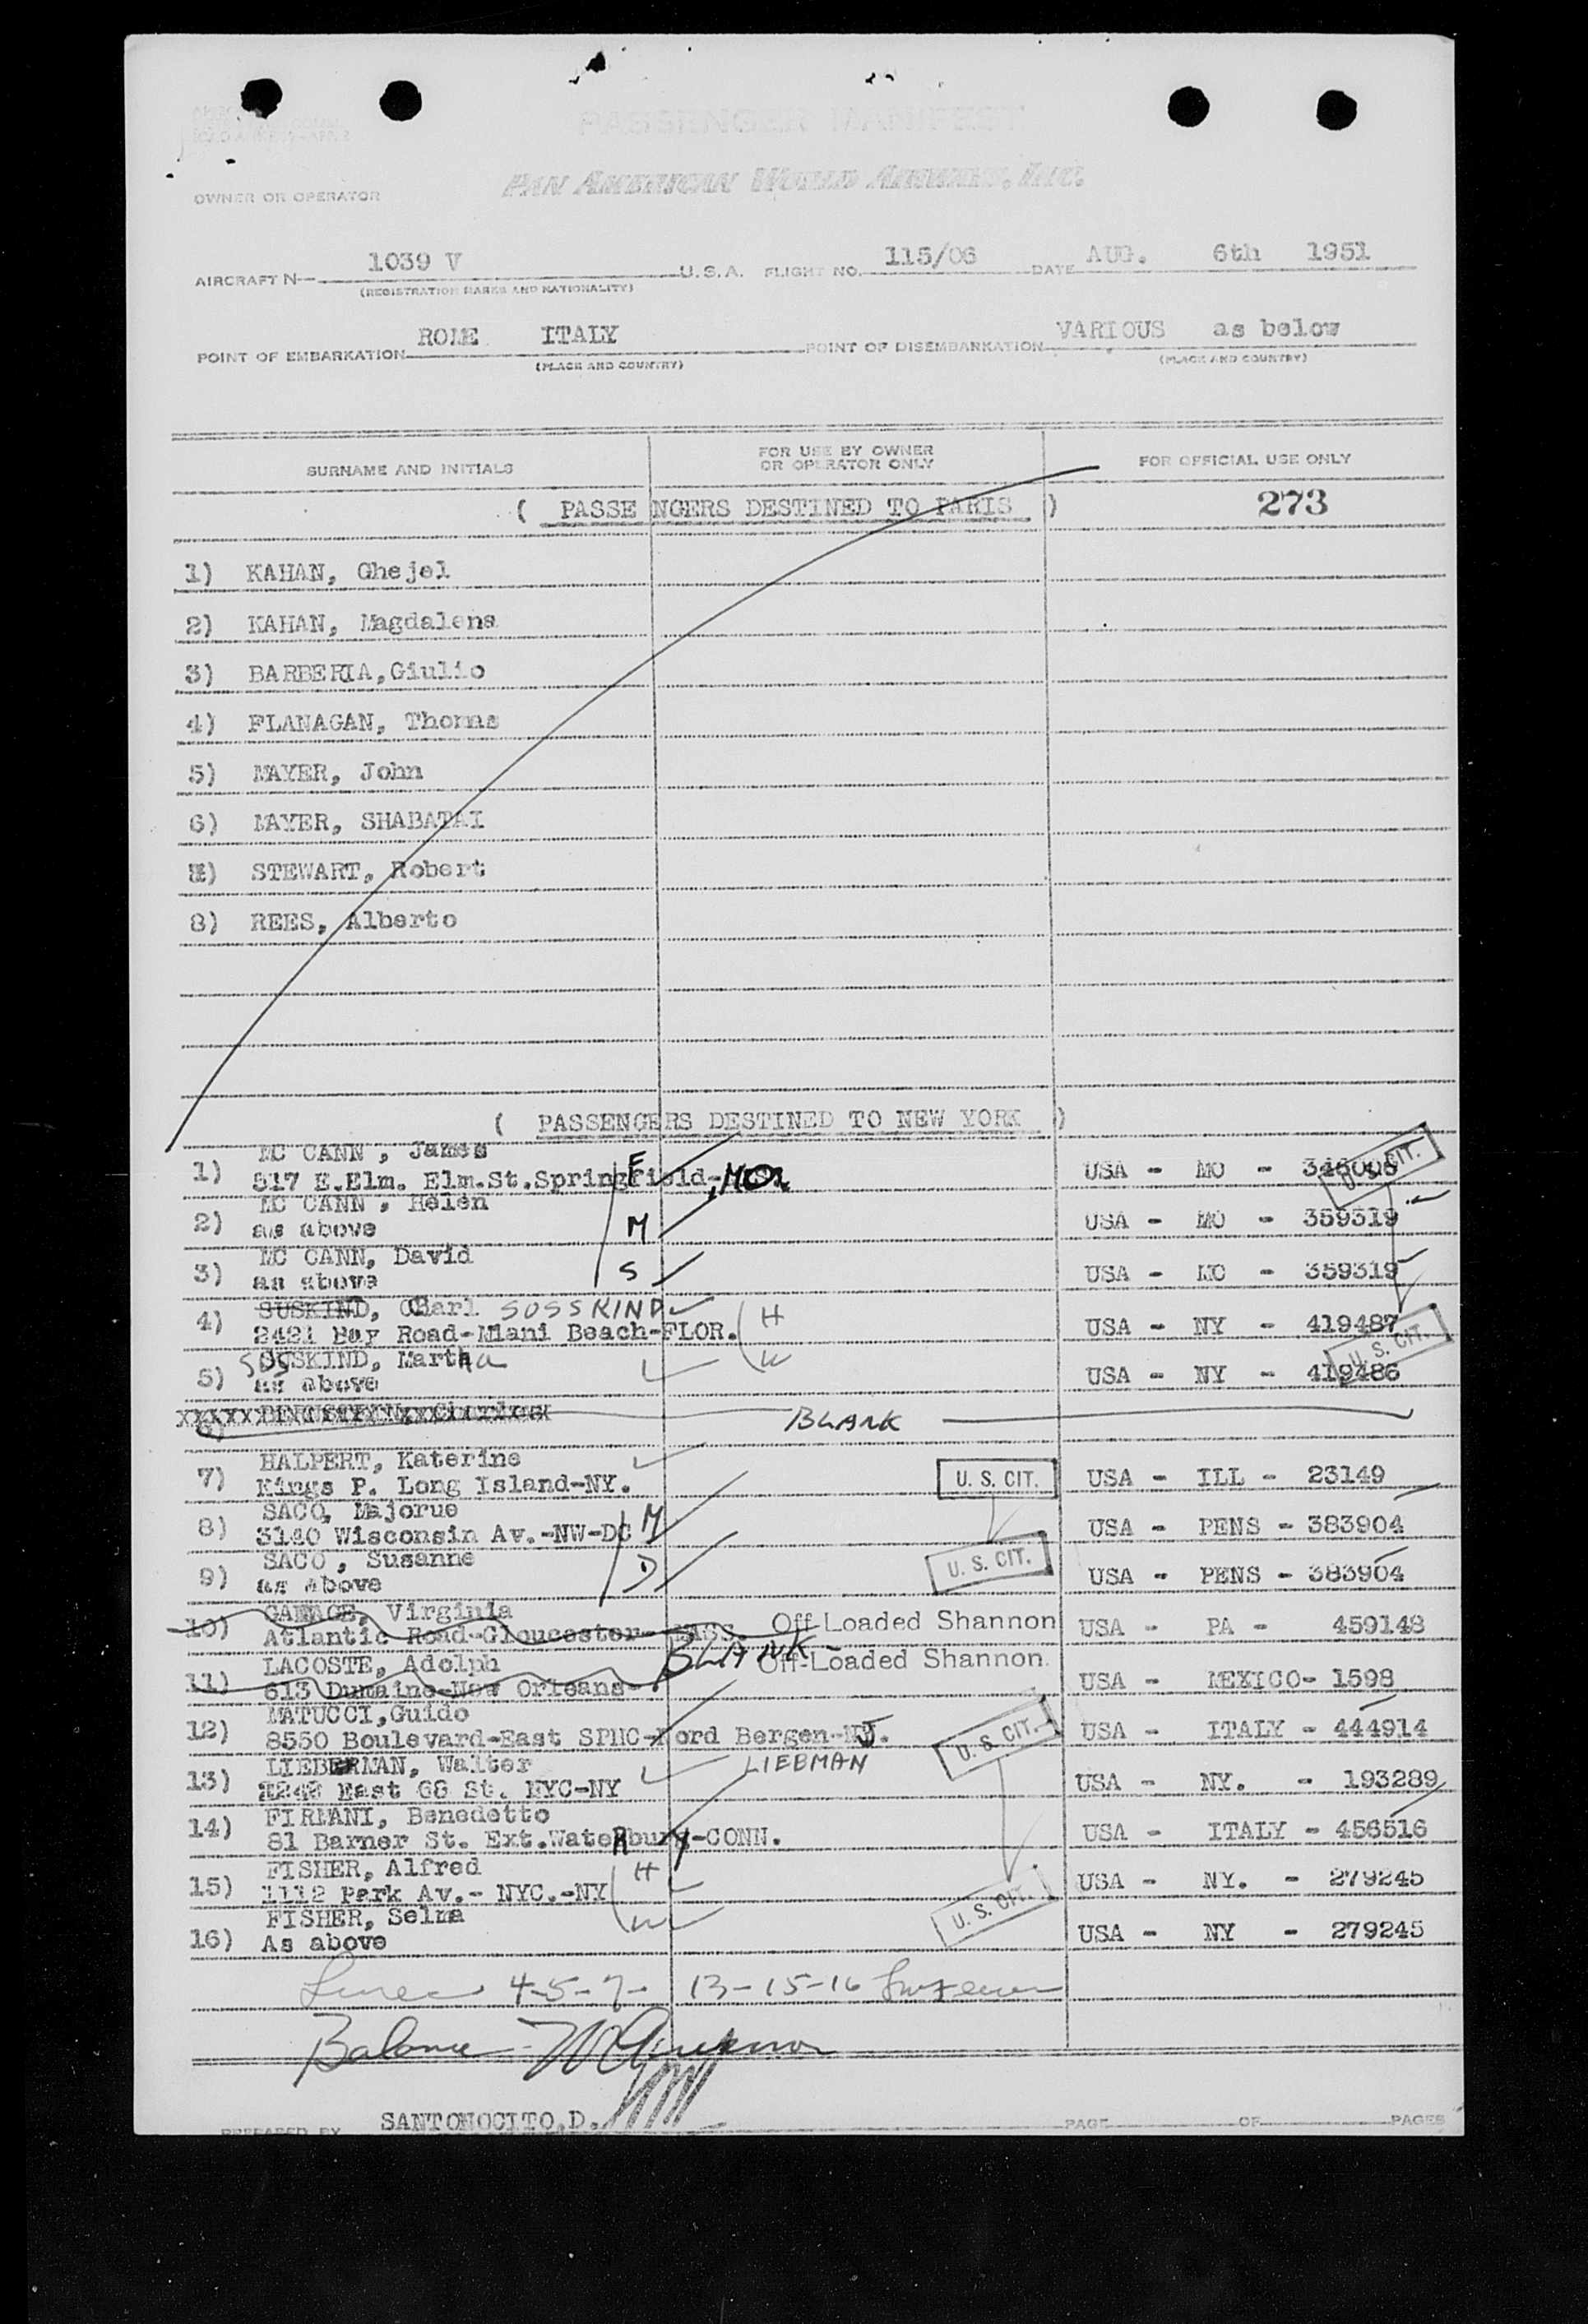 PASSENGER MANIFEST
PAN AMERICAN WORLD AIRWAYS, INC.
OWNER OR OPERATOR
AIRCRAFT N— 1039 V U.S.A. FLIGHT NO. 115/06 DATE AUG. 6th 1951
(REGISTRATION MARKS AND NATIONALITY)
POINT OF EMBARKATION ROME ITALY POINT OF DISEMBARKATION VARIOUS as below
(PLACE AND COUNTRY) (PLACE AND COUNTRY)
SURNAME AND INITIALS
FOR USE BY OWNER
OR OPERATOR ONLY
FOR OFFICIAL USE ONLY
( PASSENGERS DESTINED TO PARIS ) 273
1) KAHAN, Ghejel
2) KAHAN, Magdalena
3) BARBERIA,Giulio
4) FLANAGAN, Thomas
5) MAYER, John
6) MAYER, SHABATAI
7) STEWART, Robert
8) REES, Alberto
( PASSENGERS DESTINED TO NEW YORK )
MC CANN , James
1) 817 E.Elm. Elm.St.Springfield-, MO. F USA - MO - 346006 U. S. CIT.
MC CANN , Helen
2) as above M USA - MO - 359319
MC CANN, David
3) as above S USA - MO - 359319
SUSKIND, Carl SUSSKIND
4) 2421 Bay Road-Miami Beach-FLOR. H USA - NY - 419487 U. S. CIT.
SUSSKIND, Martha
5) as above W USA - NY - 419486
6) BLANK
HALPERT, Katerine
7) Kings P. Long Island-NY. U. S. CIT. USA - ILL - 23149
SACO, Majorue
8) 3140 Wisconsin Av.-NW-DC M USA - PENS - 383904
SACO , Susanne
9) as above D U. S. CIT. USA - PENS - 383904
GAMAGE, Virginia
10) Atlantic Road-Gloucester- MASS. Off-Loaded Shannon USA - PA - 459148
BLANK
LACOSTE, Adolph Off-Loaded Shannon.
11) 613 Dumaine-New Orleans USA - MEXICO- 1598
MATUCCI,Guido
12) 8550 Boulevard-East SPHC-Nord Bergen-NJ. U. S. CIT. USA - ITALY - 444914
LIEBERMAN, Walter LIEBMAN
13) East 68 St. NYC-NY USA - NY. - 193289
FIRMANI, Benedetto
14) 81 Barner St. Ext.WateRbury-CONN. USA - ITALY - 456516
FISHER, Alfred H
15) 1112 Park Av.- NYC.-NY USA - NY. - 279245
FISHER, Selma W U. S. CIT.
16) As above USA - NY - 279245
Lines 4-5-7- 13-15-16
Balance
PREPARED BY SANTONOCITO,D. PAGE OF PAGES